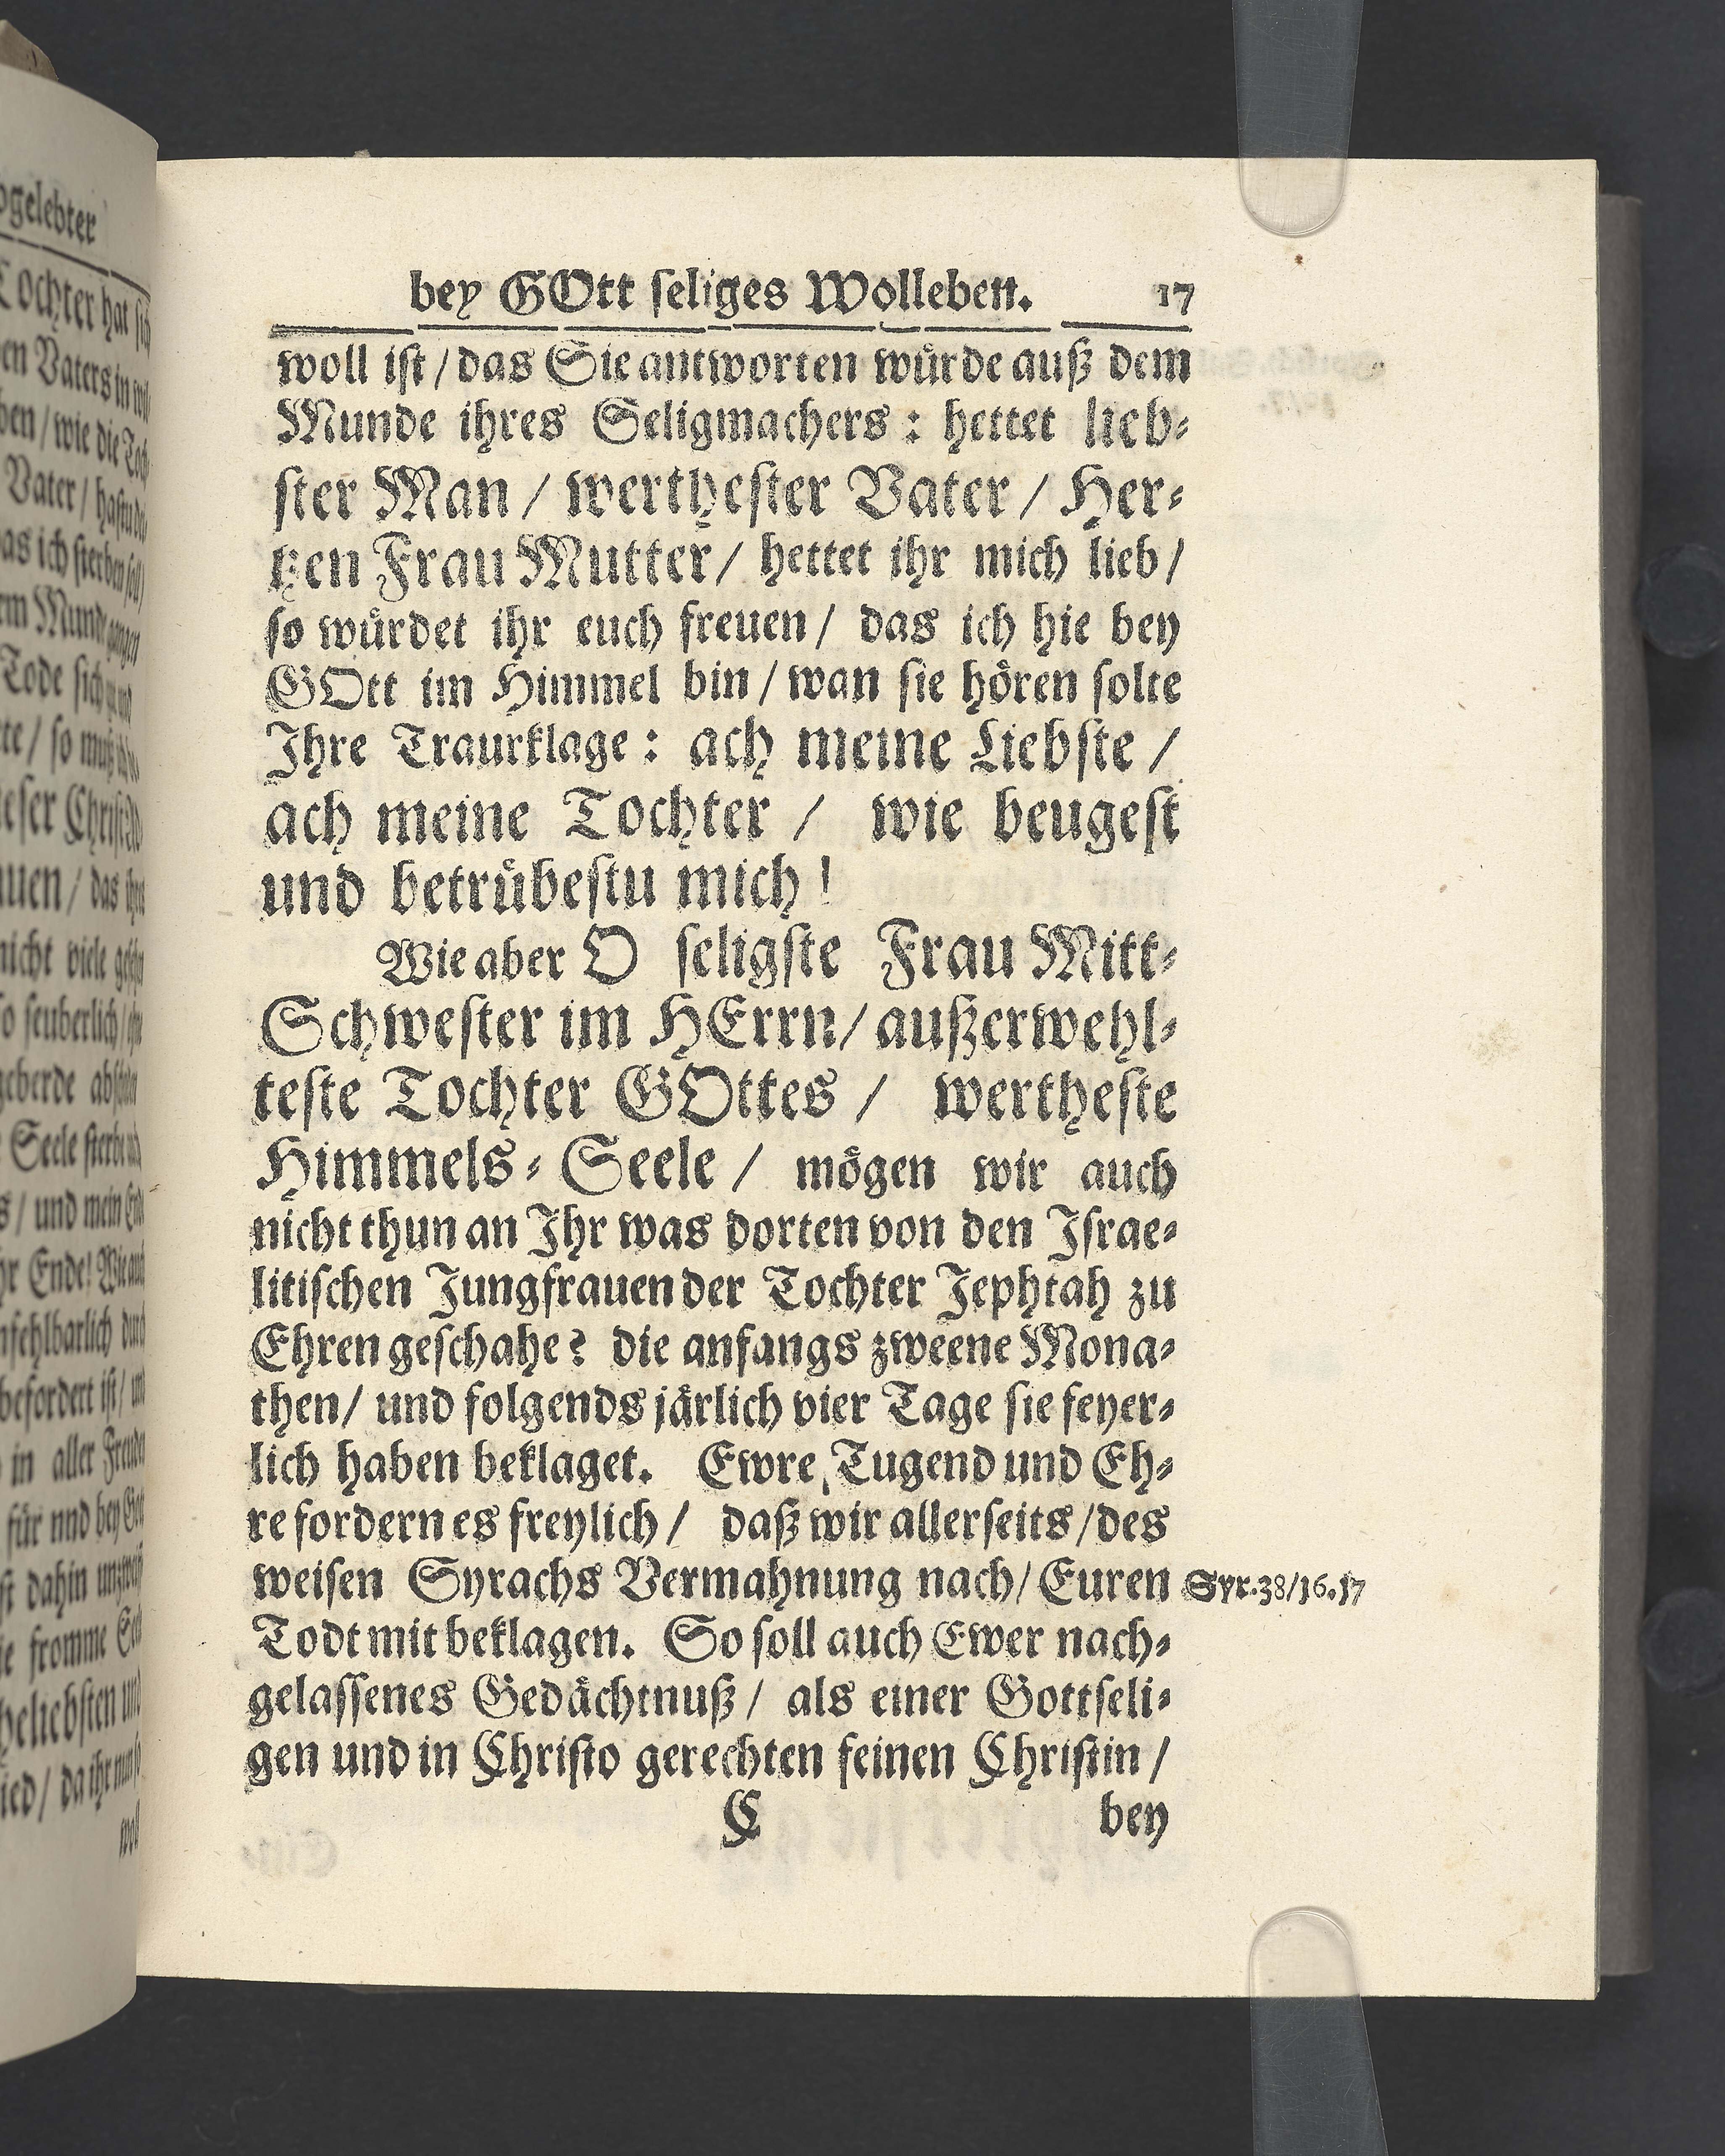 bey GOtt ſeliges Wolleben. 17
woll iſt / das Sie antworten wuͤrde auß dem
Munde ihres Seligmachers : hettet lieb⸗
ſter Man / wertheſter Vater / Her⸗
tzen Frau Mutter / hettet ihr mich lieb /
ſo wuͤrdet ihr euch freuen / das ich hie bey
GOtt im Himmel bin / wan ſie hoͤren ſolte
Ihre Traurklage : ach meine Liebſte /
ach meine Tochter / wie beugeſt
und betruͤbeſtu mich !
Wie aber O ſeligſte Frau Mitt⸗
Schweſter im HErrn / außerwehl⸗
teſte Tochter GOttes / wertheſte
Himmels⸗Seele / moͤgen wir auch
nicht thun an Ihr was dorten von den Iſrae⸗
litiſchen Jungfrauen der Tochter Jephtah zu
Ehren geſchahe? die anfangs zweene Mona⸗
then / und folgends jaͤrlich vier Tage ſie feyer⸗
lich haben beklaget. Ewre Tugend und Eh⸗
re fordern es freylich / daß wir allerſeits / des
weiſen Syrachs Vermahnung nach / Euren
Syr. 38/16.17
Todt mit beklagen. So ſoll auch Ewer nach⸗
gelaſſenes Gedaͤchtnuß / als einer Gottſeli⸗
gen und in Chriſto gerechten feinen Chriſtin /
C bey
ochter hat
Vaters in
wie die
Vater /
as ich ſterben ſoll
Tode ſich
nicht viele
ſo ſeuberlich /
geberde
Seele
und mein
Ende!
befordert iſt /
in aller
dahin
fromme